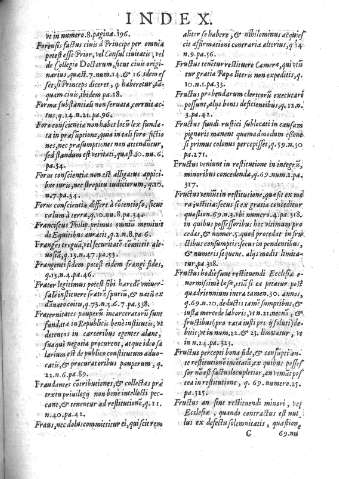 INDEX.
ve in numero 8. pagina. 396.
Forensis factus civis à Principe per omnia
potest esse Prior, vel Consul civitatis, vel
de Collegio Doctorum, sicut civis origi-
narius, quæst. 7. num. 14. & 16. idem es-
se, si Princeps diceret, q̃ haberetur tã-
quam civis, ibidem pa. 18.
Forma substantiali non servata, corruit ac-
tus, q. 14. n. 21. pa. 96.
Foro conscientiæ non habet locũ lex funda-
ta in præsumptione, quia in tali foro fictio-
nes, nec præsumptiones non attenduntur,
sed standum est veritati, quæst. 40. nu. 6.
pa. 34.
Foro conscientiæ non est allegatus appici-
bus iuris, nec strepitu iudiciorum, q. 26.
n. 7. pa. 217.
Foro conscientiæ differt à contentioso, sicut
cœlum à terra, q. 10. nu. 8. pa. 34.
Franciscus Philip. primus omniũ meminit
de Equitibus auratis, q. 11. nu. 6. pa. 22.
Frangi tregua, vel securitatem committit ale-
vosiã, q. 13. n. 47. pa. 53.
Frangenti fidem potest eidem frangi fides,
q. 13. n. 4. pa. 46.
Frater legitimus potest sibi hæredẽ univer-
salẽ instituere fratrẽ spuriũ, & natũ ex
dãnato coitu, q. 75. n. 6. 7. pa. 338.
Fraternitates pauperũ incarceratorũ sunt
fundatæ in Republicis bono instituto, ve
detentos in carceribus egenos alant,
suaq; negotia procurent, atque ideo sa-
larium est de publico constitutum advo-
catis, & procuratoribus pauperum, q.
22. n. 6. pa. 89.
Fraudantes contributiones, & collectas præ-
textu privilegij non bene intellecti pec-
cant, & tenentur ad restitutionẽ, q. 21.
n. 40. pa. 42.
Fraus, nec dolus committitur ei, qui scit rem
aliter se habere, & nihilominus acquies-
cit assertioni contrariæ alterius, q. 14.
n. 9. pa. 56.
Fructus tenetur restituere Cameræ, qui vti-
tur gratia Papæ literis non expeditis, q.
10. n. 1. pa. 35.
Fructus præbendarum clericorũ executari
possunt, alijs bonis deficientibus, q. 12. n.
2. pa. 42.
Fructus fundi rustici sublocati in causam
pignoris manent quemadmodum existenti-
bus primus colonus percepisset, q. 59. n. 30
pa. 271.
Fructus veniunt in restitutione in integrũ,
minoribus concedenda, q. 69. nu. 2. pa.
317.
Fructus veniunt in restitutione, quæ fit ex mo
ra iustitia secus si ex gratia conceditur
quæstion. 69. n. 3. ibi numero 4. pa. 318.
in quibus possessoribus hoc vitium pro-
cedat, & numer. 5. quod procedat in fru-
ctibus consumptis: secus in pendentibus,
& numeri sequent. alias modis limita-
tur pa. 318.
Fructus hodie sunt restituendi Ecclesiæ e-
normissimè læsæ, etiã si ex petatur post
quadriennium intra tamen 30. annos,
q. 69. n. 20. deductis tamẽ sumptibus, &
iusta mercede laboris, vt n. 21. monẽt, &
fructus ita pro rata iusti pretij soluti) de-
bitis, ve in num. 22. & 23. limitatur, vt
in n. 24. pa. 323.
Fructus percepti bona fide, & consumpti an-
te restitutionẽ imitata ex quibus posses-
sor nõ est factus locupletior, an veniat pos-
tea in restitutione, q. 69. numero. 25.
pa. 325.
Fructus an sint restituendi minori, vel
Ecclesiæ, quando contractus est nul-
lus ex defectu solemnitatis, quæstion.
C 69. nu